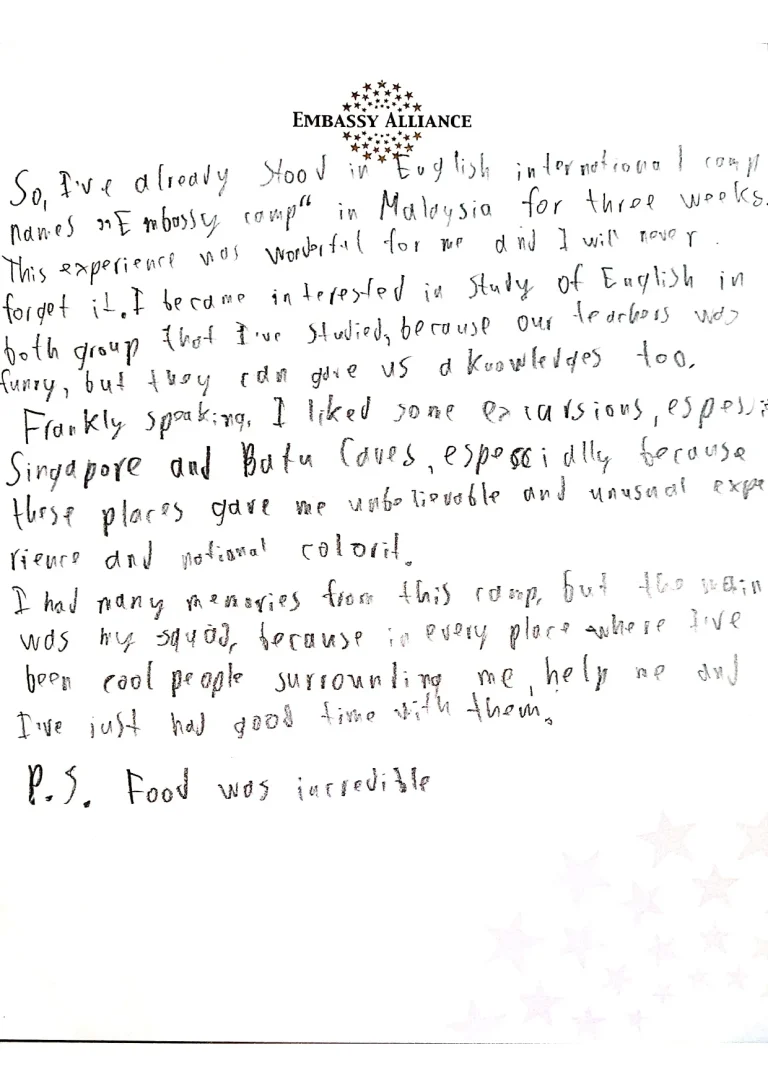 EMBASSY ALLIANCE
So, I've already stood in English international camp
names "Embassy camp" in Malaysia for three weeks.
This experience was wonderful for me and I will never
forget it. I became interested in study of English in
both group that I've studied, because our teachers was
funny, but they can gave us a knowledges too.
Frankly speaking, I liked some excursions, espesi
Singapore and Batu Caves, especcially because
these places gave me unbelievable and unusual expe
rience and national colorit.
I had many memories from this camp, but the main
was my squad, because in every place where I've
been cool people surrounding me, help me and
I've just had good time with them.
P.S. Food was incredible